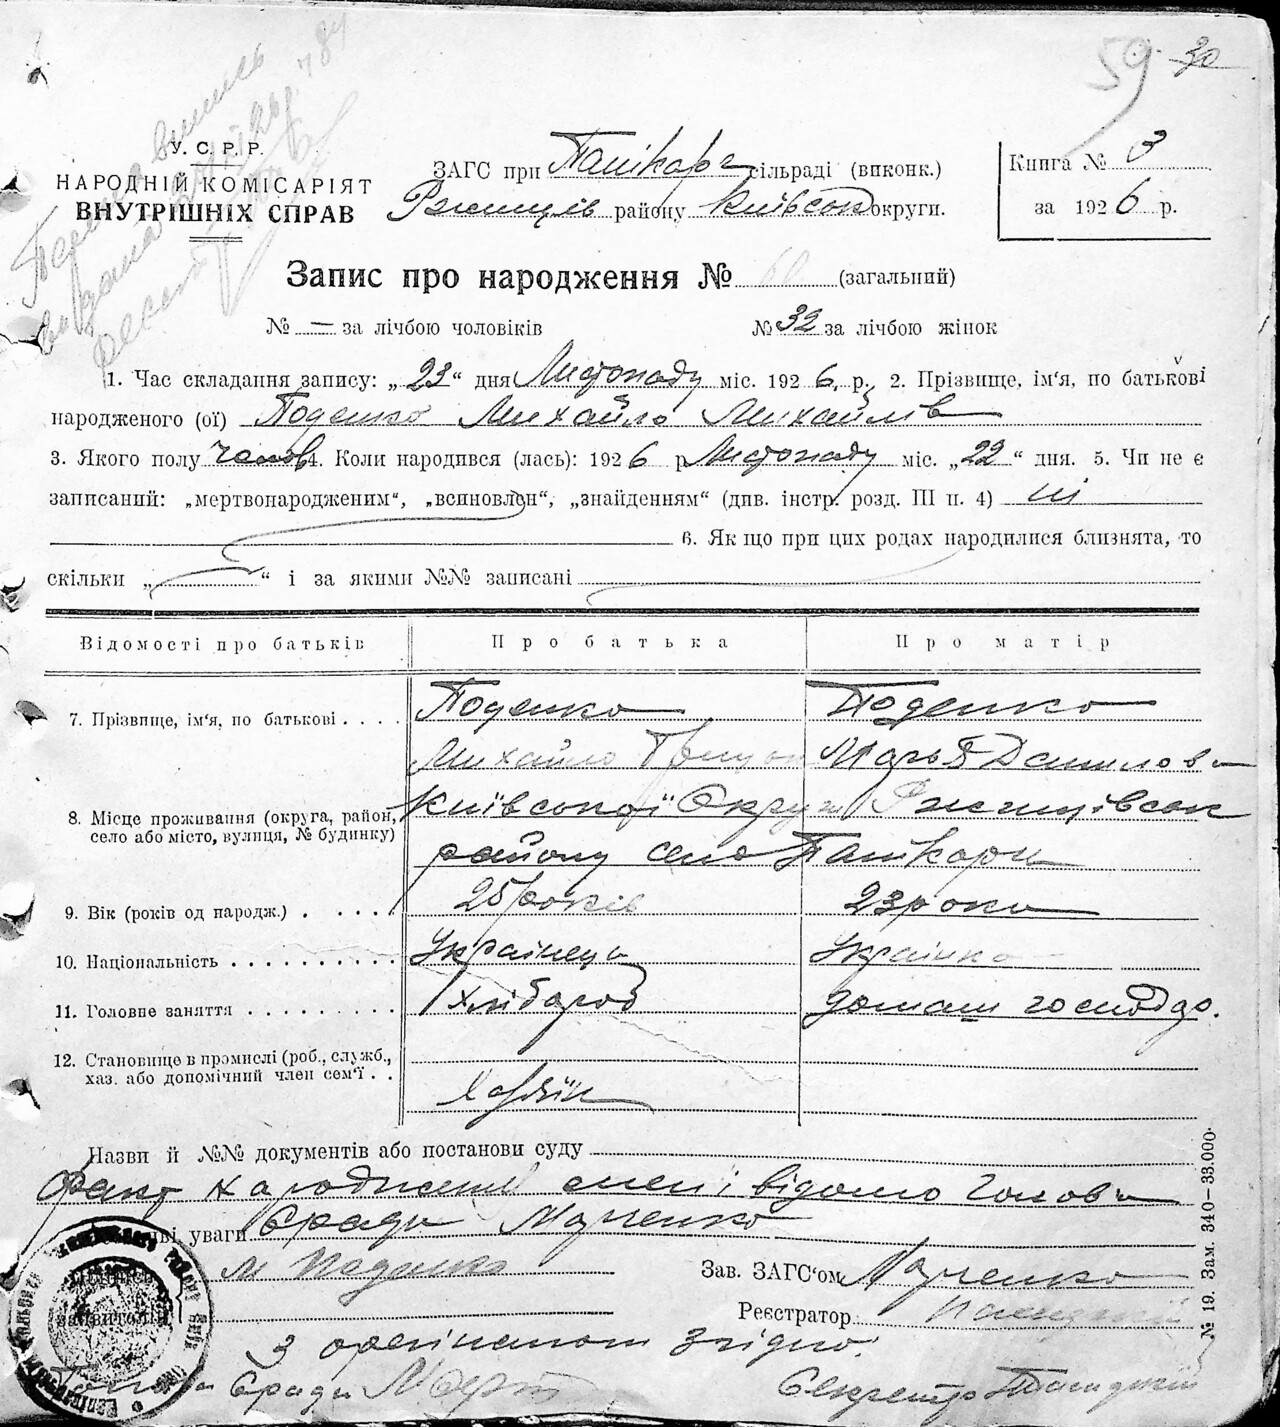 59 30
У.С.Р.Р.
НАРОДНІЙ КОМІСАРІЯТ
ВНУТРІШНІХ СПРАВ
ЗАГС при сільраді (виконк.)
Ржищів району Київськ округи.
Книга № 3
за 1926 р.
Запис про народження № 60 (загальний)
№ — за лічбою чоловіків № 32 за лічбою жінок
1. Час складання запису: „23“ дня Листопаду міс. 1926 р. 2. Прізвище, ім'я, по батькові
народженого (ої) Поденко Михайло Михайлів
3. Якого полу чолов 4. Коли народився (лась): 1926 р Листопаду міс. „22“ дня. 5. Чи не є
записаний: „мертвонародженим“, „всиновлен“, „знайденням“ (див. інстр. розд. III п. 4) ні
6. Як що при цих родах народилися близнята, то
скільки „ “ і за якими №№ записані
Відомості про батьків Про батька Про матір
7. Прізвище, ім'я, по батькові . . . . Поденко Поденко
Михайло Марья Данилов
8. Місце проживання (округа, район,
село або місто, вулиця, № будинку)
Київської Округи Ржищівськ
району село
9. Вік (років од народж.) . . . . . 25 років 23 роки
10. Національність . . . . . . . . . . Українець Українка
11. Головне заняття . . . . . . . . . Хлібороб домаш господар.
12. Становище в промислі (роб., служб.,
хаз. або допомічний член сем'ї . . Хазяїн
Назви й №№ документів або постанови суду
Факт народження мені відомо Голова
уваги с/ради Марченко
М Поденко Зав. ЗАГС'ом Марченко
Реєстратор
З оригіналом згідно:
Голова с/ради Секретр
№ 19. Зам. 340—33.000.